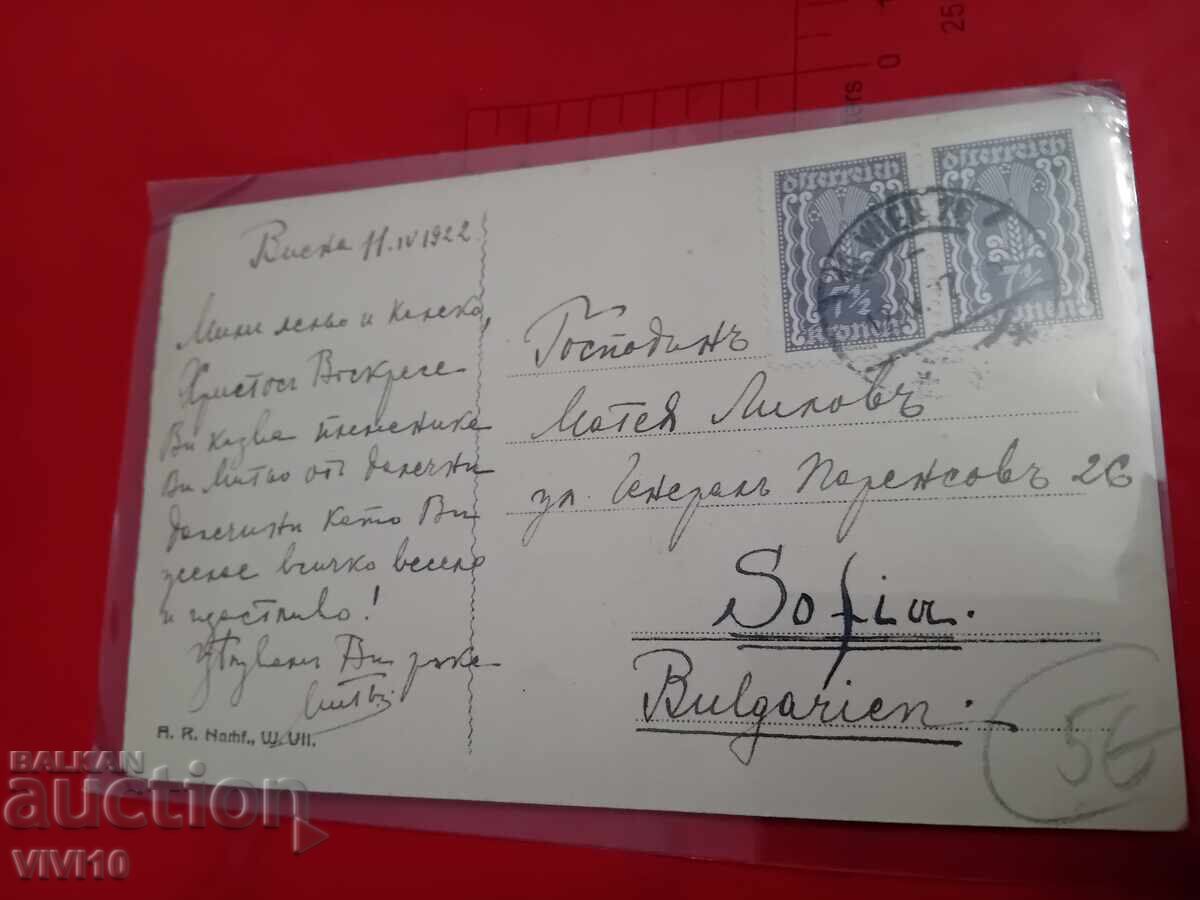 Виена 11.IV 1922
Мили лельо и
Христосъ Воскресе
Ви казва племеника
Ви Митьо отъ далечни
далечини като Ви
желае всичко весело
и щастливо!
Цѣлувамъ Ви ръце
A. R. Nachf., W. VII.
Österreich
7½
Kronen
Österreich
7½
Kronen
WIEN
Господинъ
Матея
ул. Генералъ Паренсовъ 26
Sofia.
Bulgarien.
56
0
25
BALKAN
auction
VIVI10